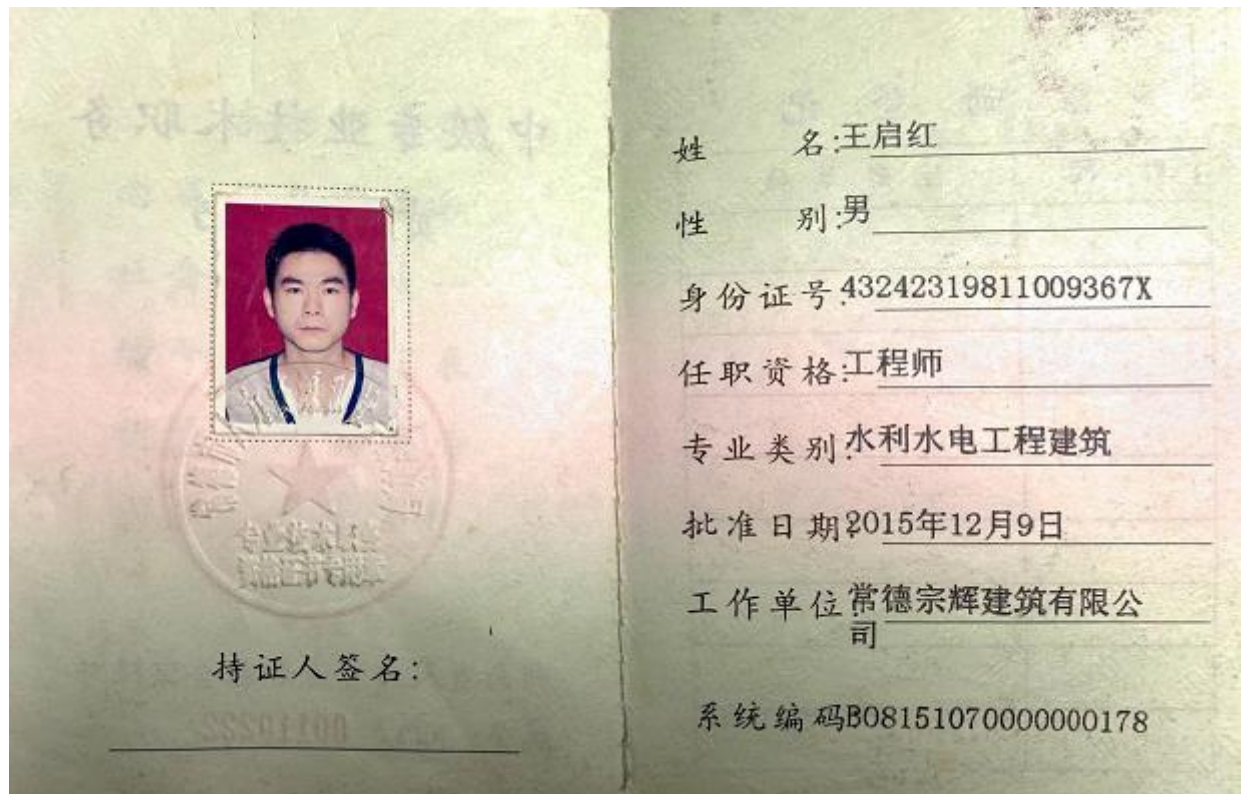 持证人签名:
姓 名:王启红
性 别:男
身份证号:43242319811009367X
任职资格:工程师
专业类别:水利水电工程建筑
批准日期:2015年12月9日
工作单位:常德宗辉建筑有限公
司
系统编码B08151070000000178